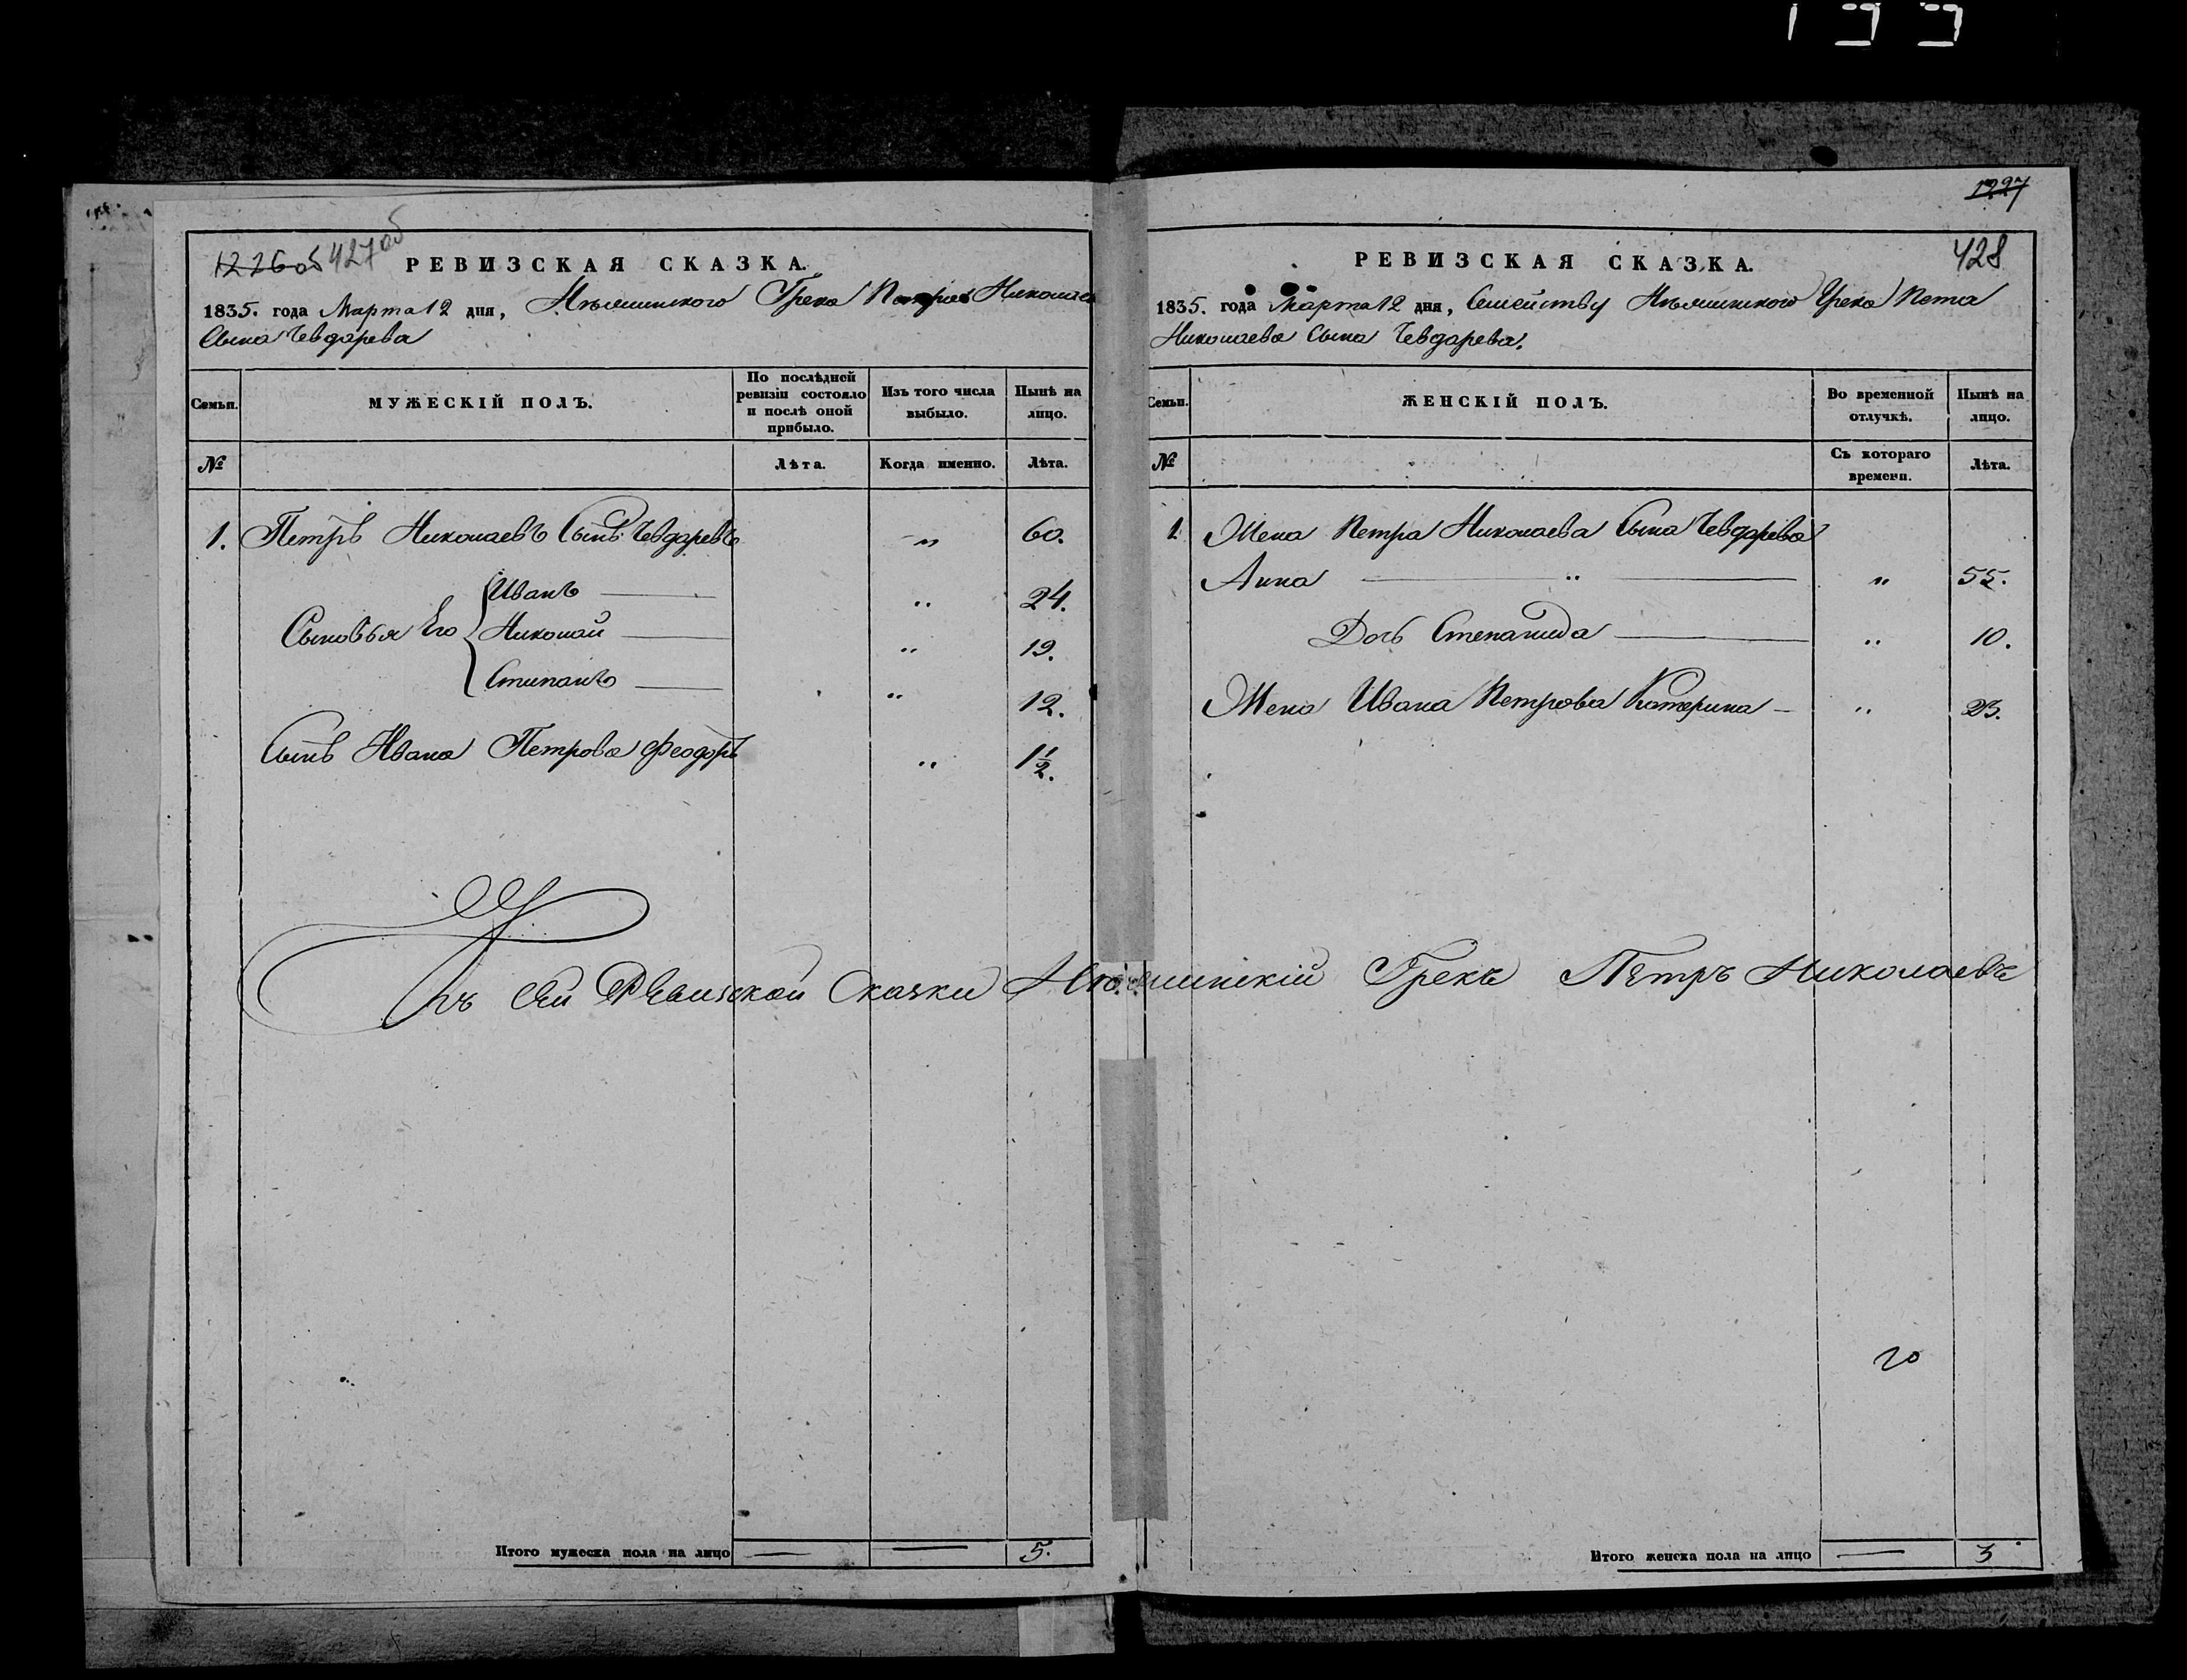 1226 об 427 об
РЕВИЗСКАЯ СКАЗКА.
1835. года Марта 12 дня, Нѣжинского Грека Петра Николаев
Сына Чевдарева
Семьи.
МУЖЕСКІЙ ПОЛЪ.
По послѣдней ревизіи состояло и послѣ оной прибыло.
Изъ того числа выбыло.
Нынѣ на лицо.
№
Лѣта.
Когда именно.
Лѣта.
1. Петръ Николаевъ Сынъ Чевдаревъ „ 60.
Сыновья Его
Иванъ „ 24.
Николай „ 19.
Стипанъ „ 12.
Сынъ Ивана Петрова Феодоръ „ 1 1/2.
Къ сей Ревизской Сказки Нѣжинскій Грекъ Петръ Николаевъ
Итого мужеска пола на лицо — — 5.
1227
428
РЕВИЗСКАЯ СКАЗКА.
1835. года Марта 12 дня, Семейству Нѣжинского Грека Пета
Николаева Сына Чевдарева.
Семьи.
ЖЕНСКІЙ ПОЛЪ.
Во временной отлучкѣ.
Нынѣ на лицо.
№
Съ котораго времени.
Лѣта.
1. Жена Петра Николаева Сына Чевдарева
Анна „ „ 55.
Дочь Степанида „ 10.
Жена Ивана Петрова Катерина „ 23.
20
Итого женска пола на лицо — 3